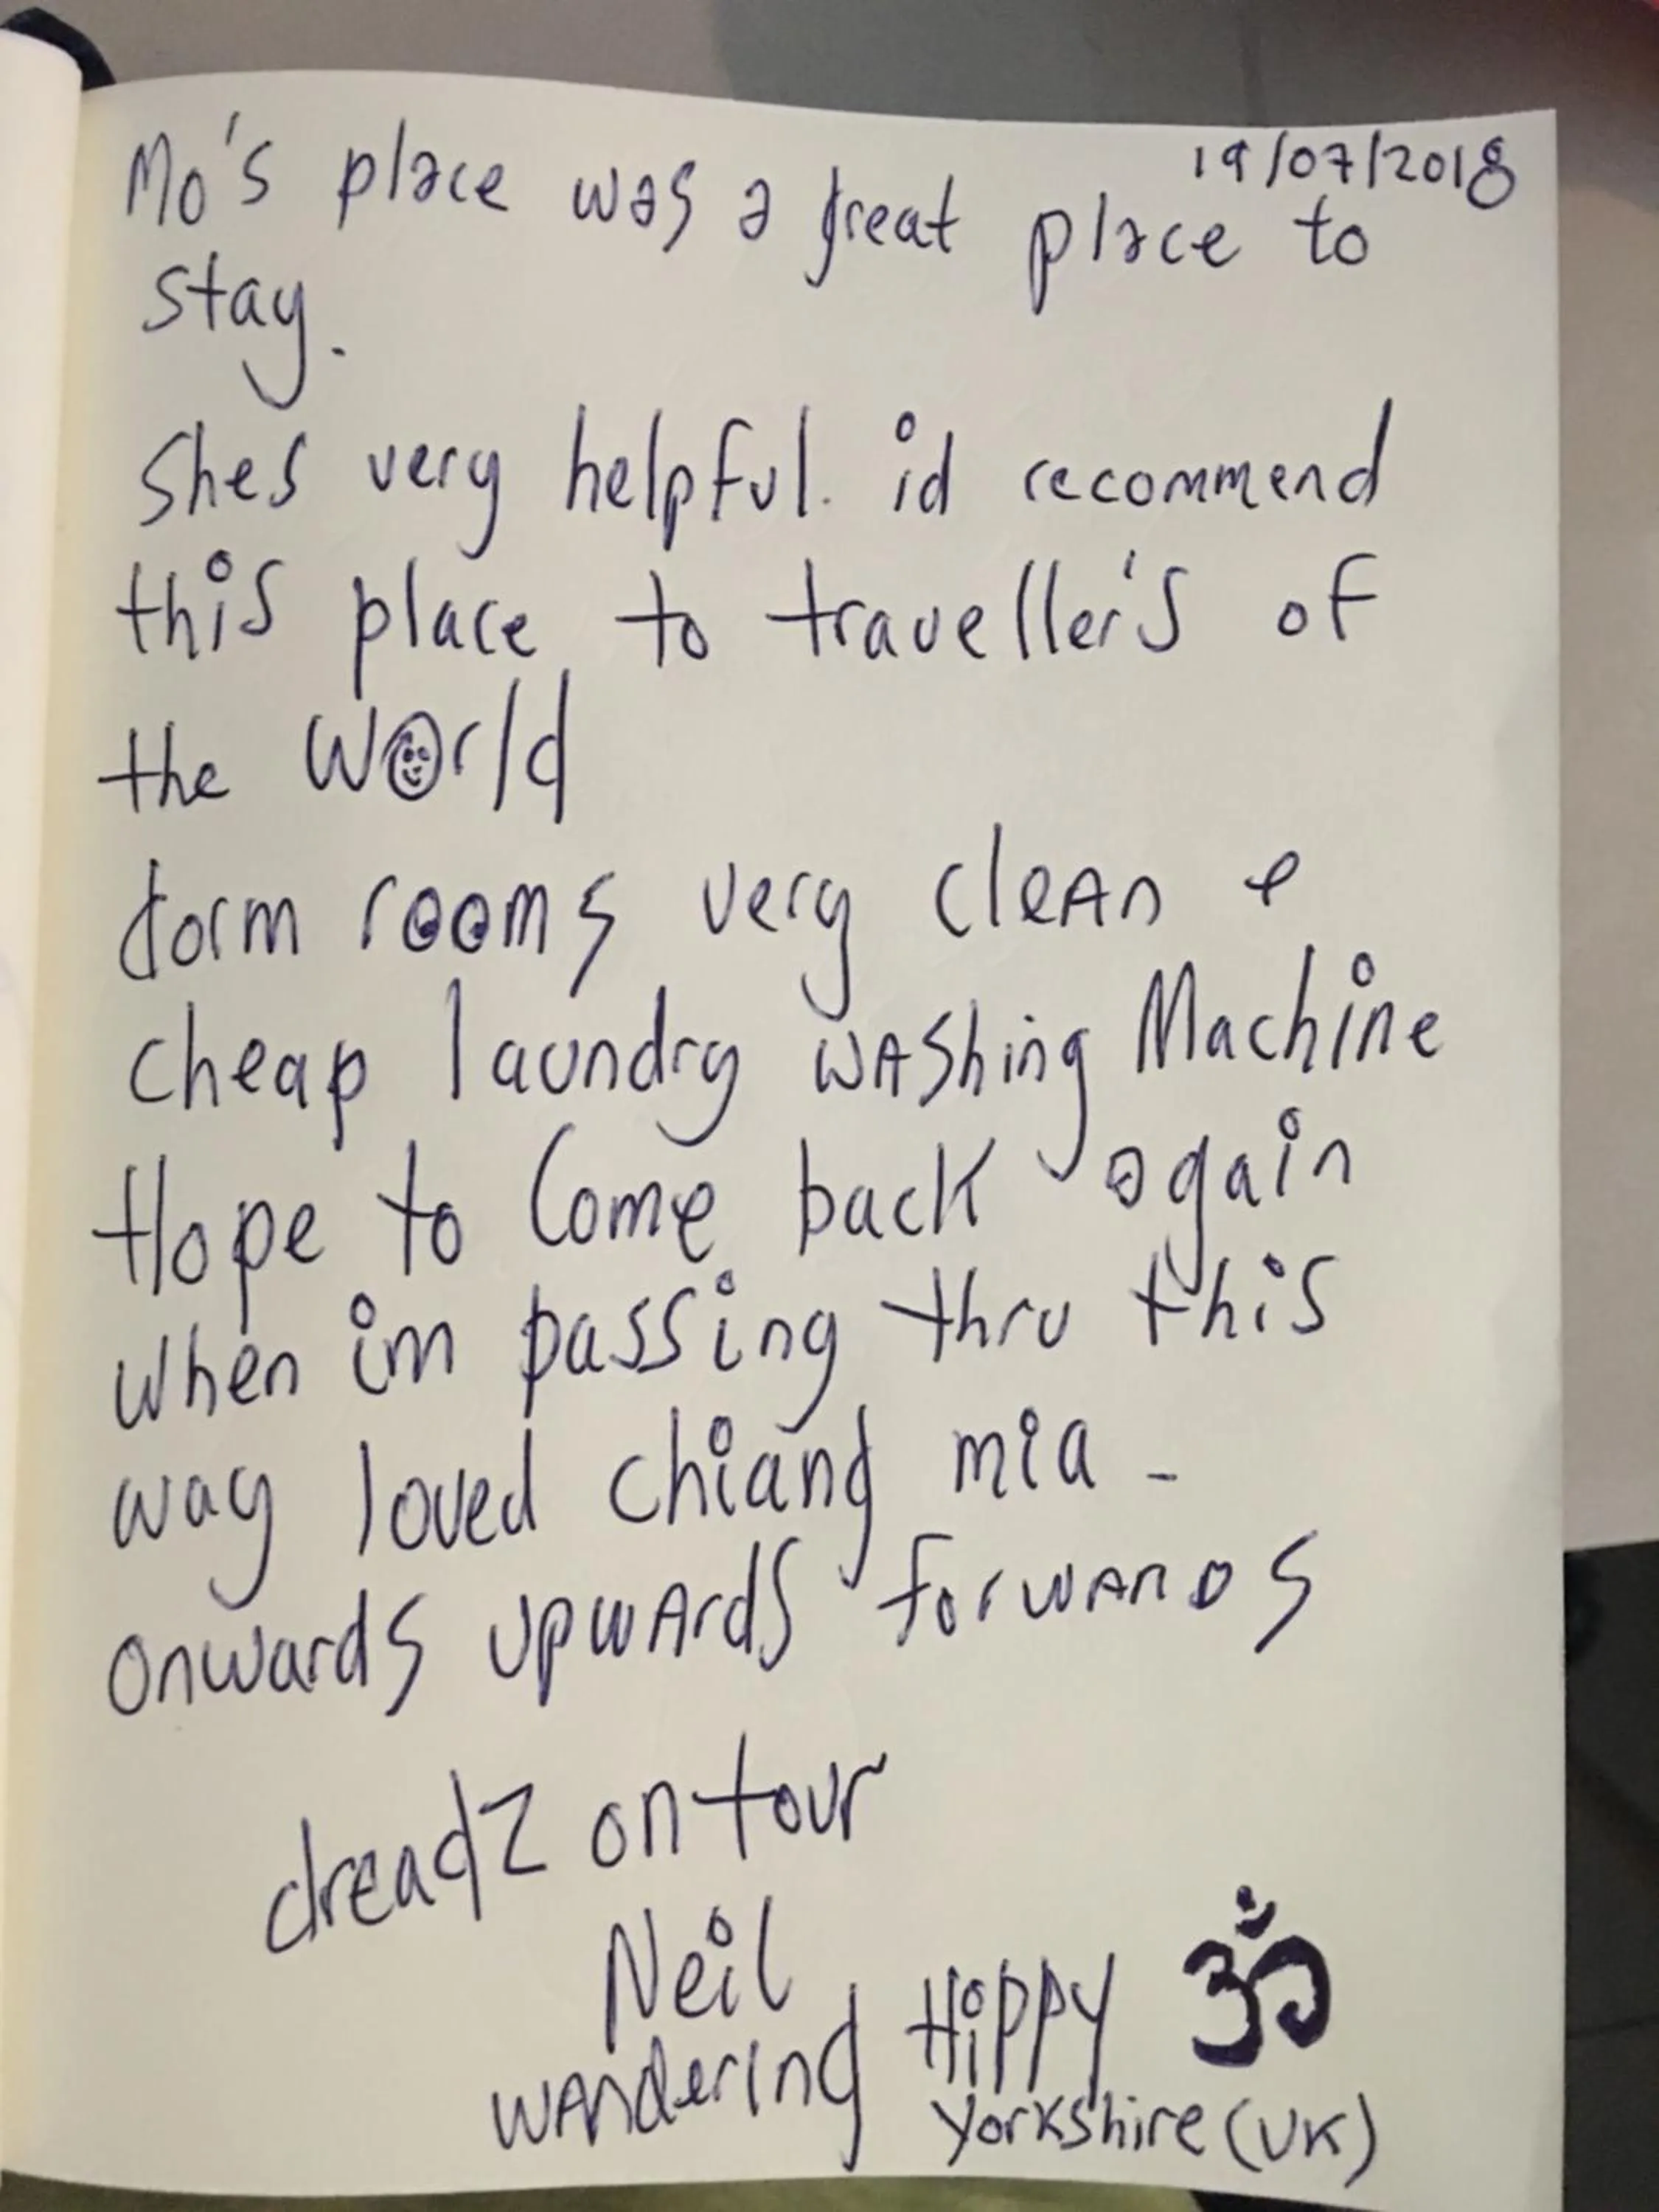 19/07/2018
Mo's place was a great place to
stay.
Shes very helpful. id recommend
this place to traveller's of
the world
dorm rooms very cleAn &
cheap laundry wAshing Machine
Hope to Come back again
when im passing thru this
way loved chiang mia -
onwards upwArds forwARDS
dreadz on tour
Neil
wAndering Hippy ॐ
Yorkshire (UK)